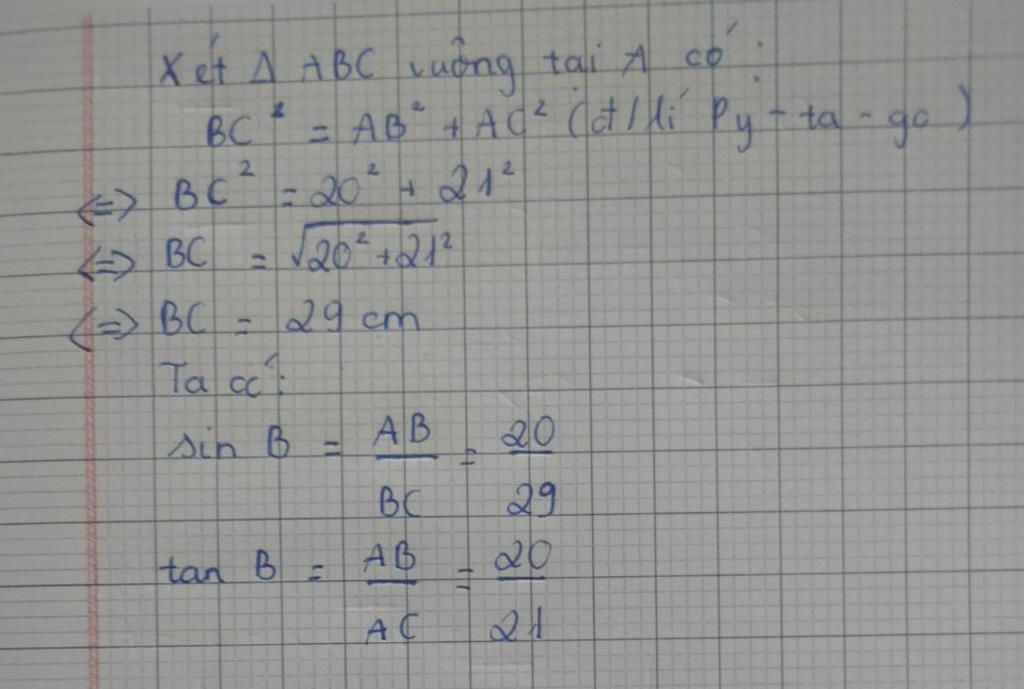 Xét Δ ABC vuông tại A có:
BC² = AB² + AC² (đ/lí Py-ta-go)
<=> BC² = 20² + 21²
<=> BC = √20²+21²
<=> BC = 29 cm
Ta có:
sin B = AB/BC = 20/29
tan B = AB/AC = 20/21